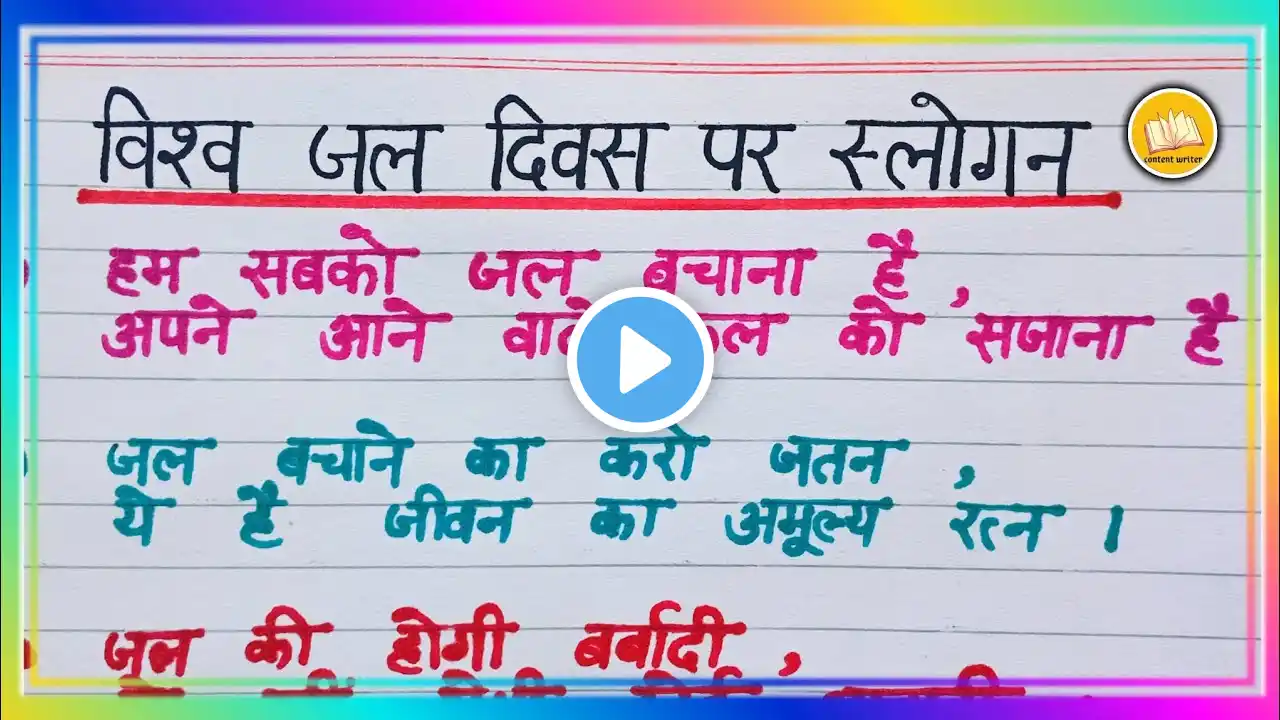 विश्व जल दिवस पर स्लोगन
content writer
हम सबको जल बचाना है,
अपने आने को सजाना है
जल बचाने का करो जतन,
ये है जीवन का अमूल्य रत्न ।
जल की होगी बर्बादी,